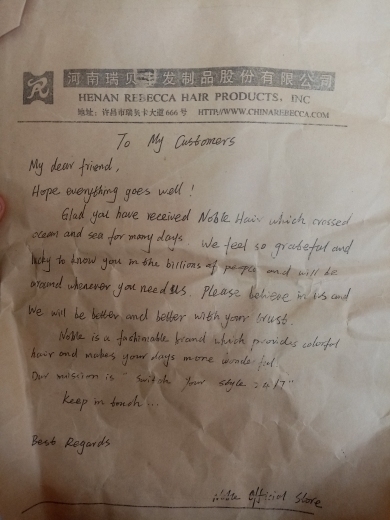 河南瑞贝卡发制品股份有限公司
HENAN REBECCA HAIR PRODUCTS, INC
地址: 许昌市瑞贝卡大道 666 号 HTTP://WWW.CHINAREBECCA.COM
To My Customers
My dear friend,
Hope everything goes well!
Glad you have received Noble Hair which crossed
ocean and sea for many days. We feel so grateful and
lucky to know you in the billions of people and will be
around whenever you need us. Please believe in us and
We will be better and better with your trust.
Noble is a fashionable brand which provides colorful
hair and makes your days more wonderful.
Our mission is "Switch Your style 24/7"
Keep in touch...
Best Regards
Noble Official Store